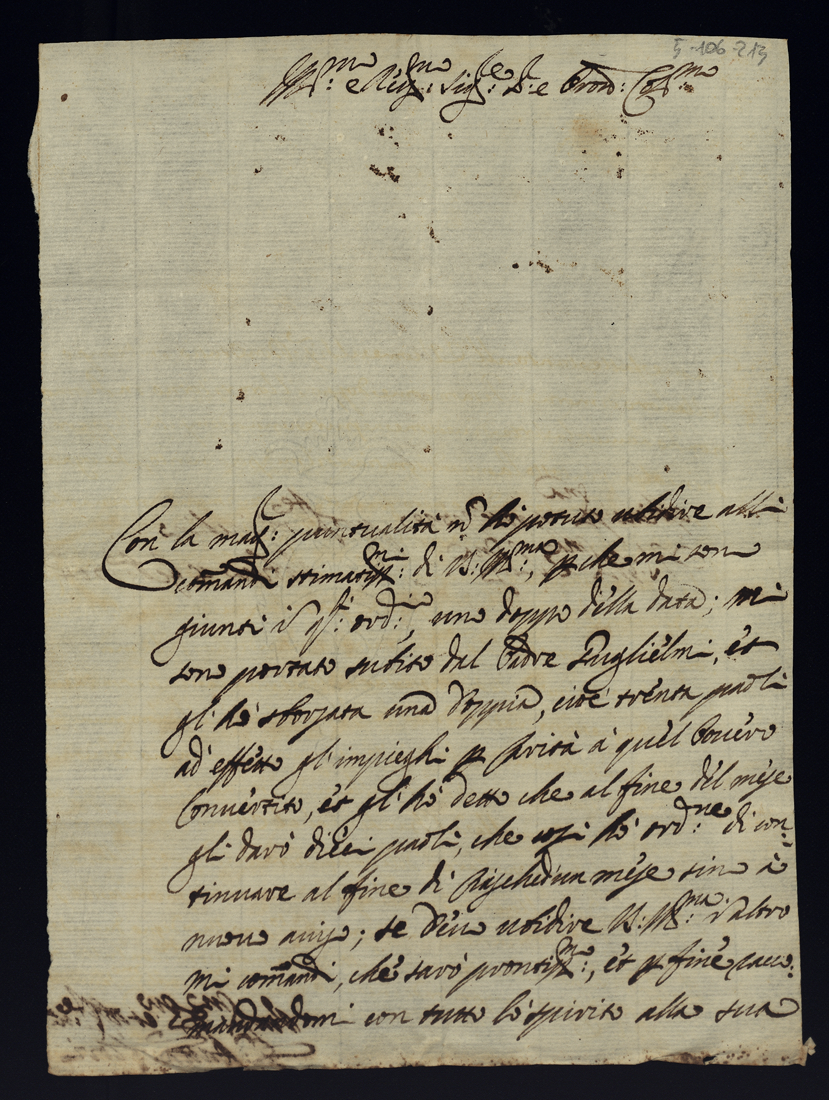 5-106-213
Ill:mo e Rev:mo Sig:re S:e e Pron: Col:mo
Con la mag: puintualità nõ hò potuto ubidire alli
comãndi stimatiss:mi di V: Ill:ma, p che mi sono
giunti i q: ord:, uno doppo della data; mi
sono portato subito dal Padre Guglielmi, et
gl'hò sborzata una doppia, cioè trenta paoli
ad effetto gl'impieghi p carità à quel Povero
Convertito, et gl'hò detto che al fine del mese
gli darò dieci paoli, che così hò ord:ne di con:
tinuare al fine di ciaschedun mese sin à
nuovo aviso; se devo ubidire V: Ill:ma d'altro
mi comãndi, che sarò prontiss:mo, et p fine racco:
mandandomi con tutto lo spirito alla sua